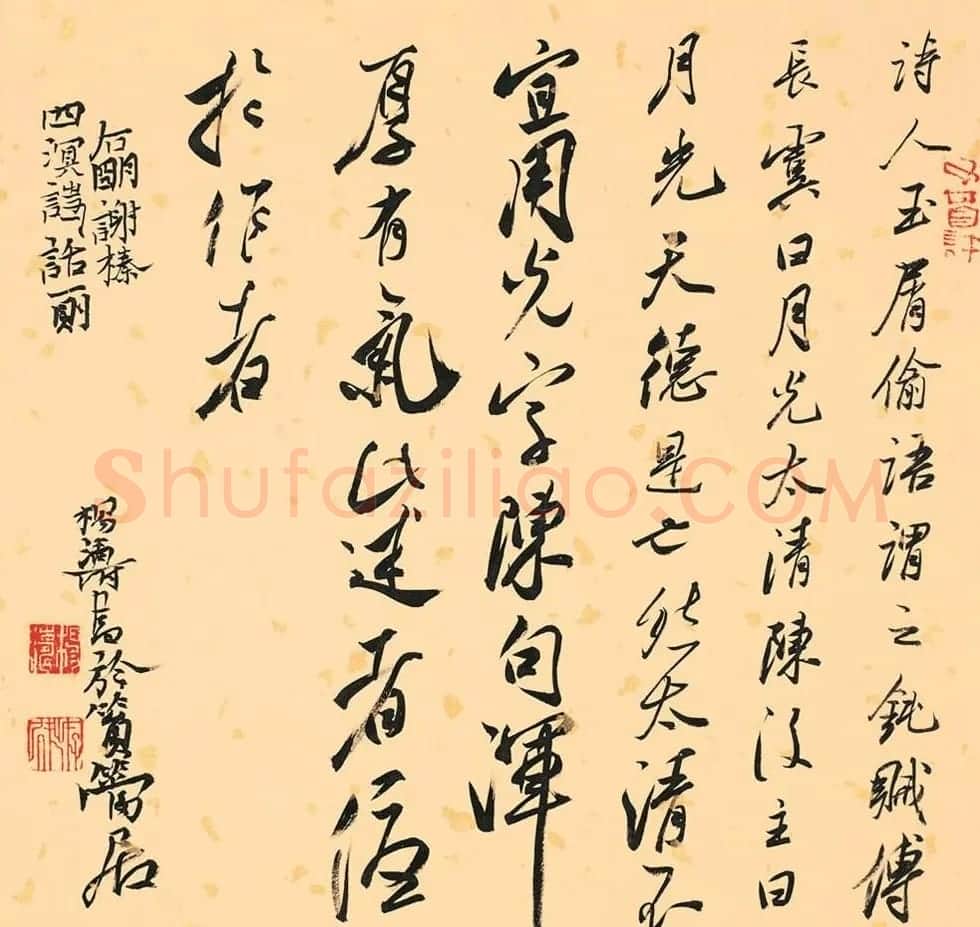 詩人玉屑偷語謂之鈍賊傅
長虞日月光太清陳後主日
月光天德是也然太清不
宜用光字陳句渾
厚有氣此述者優
於作者
右明謝榛
四溟詩話一則
楊濤書於篔簹居
shufaziliao.COM